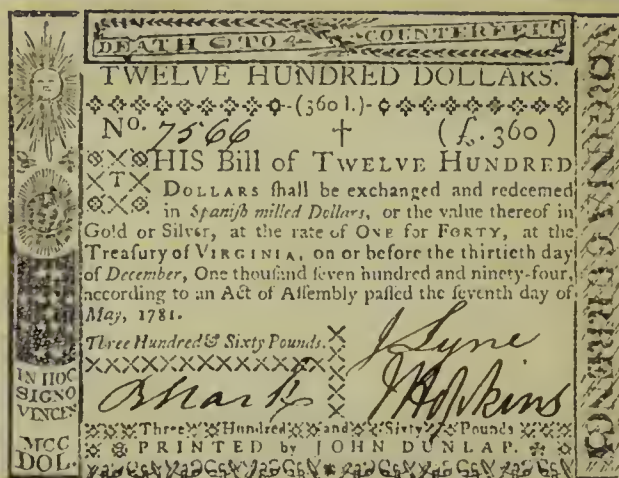 DEATH TO COUNTERFEIT
TWELVE HUNDRED DOLLARS.
(360 l.)
No. 7566 † (£. 360)
THIS Bill of TWELVE HUNDRED
DOLLARS ſhall be exchanged and redeemed
in Spaniſh milled Dollars, or the value thereof in
Gold or Silver, at the rate of ONE for FORTY, at the
Treaſury of VIRGINIA, on or before the thirtieth day
of December, One thouſand ſeven hundred and ninety-four,
according to an Act of Aſſembly paſſed the ſeventh day of
May, 1781.
Three Hundred & Sixty Pounds.
J Lyne
J Hopkins
Three Hundred and Sixty Pounds
PRINTED by JOHN DUNLAP.
IN HOC
SIGNO
VINCES
MCC
DOL.